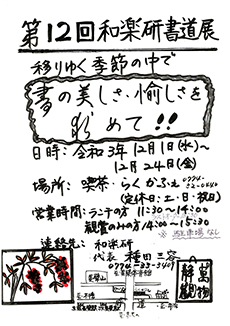 第12回 和楽研書道展
移りゆく季節の中で
書の美しさ・愉しさを
求めて!!
日時: 令和3年12月1日(水)~
12月24日(金)
場所: 喫茶・らくかふぇ
(定休日:土・日・祝日)
営業時間: ランチの方 11:30~14:00
観覧のみの方 14:00~15:30
駐車場なし
連絡先: 和楽研
代表 種田三容